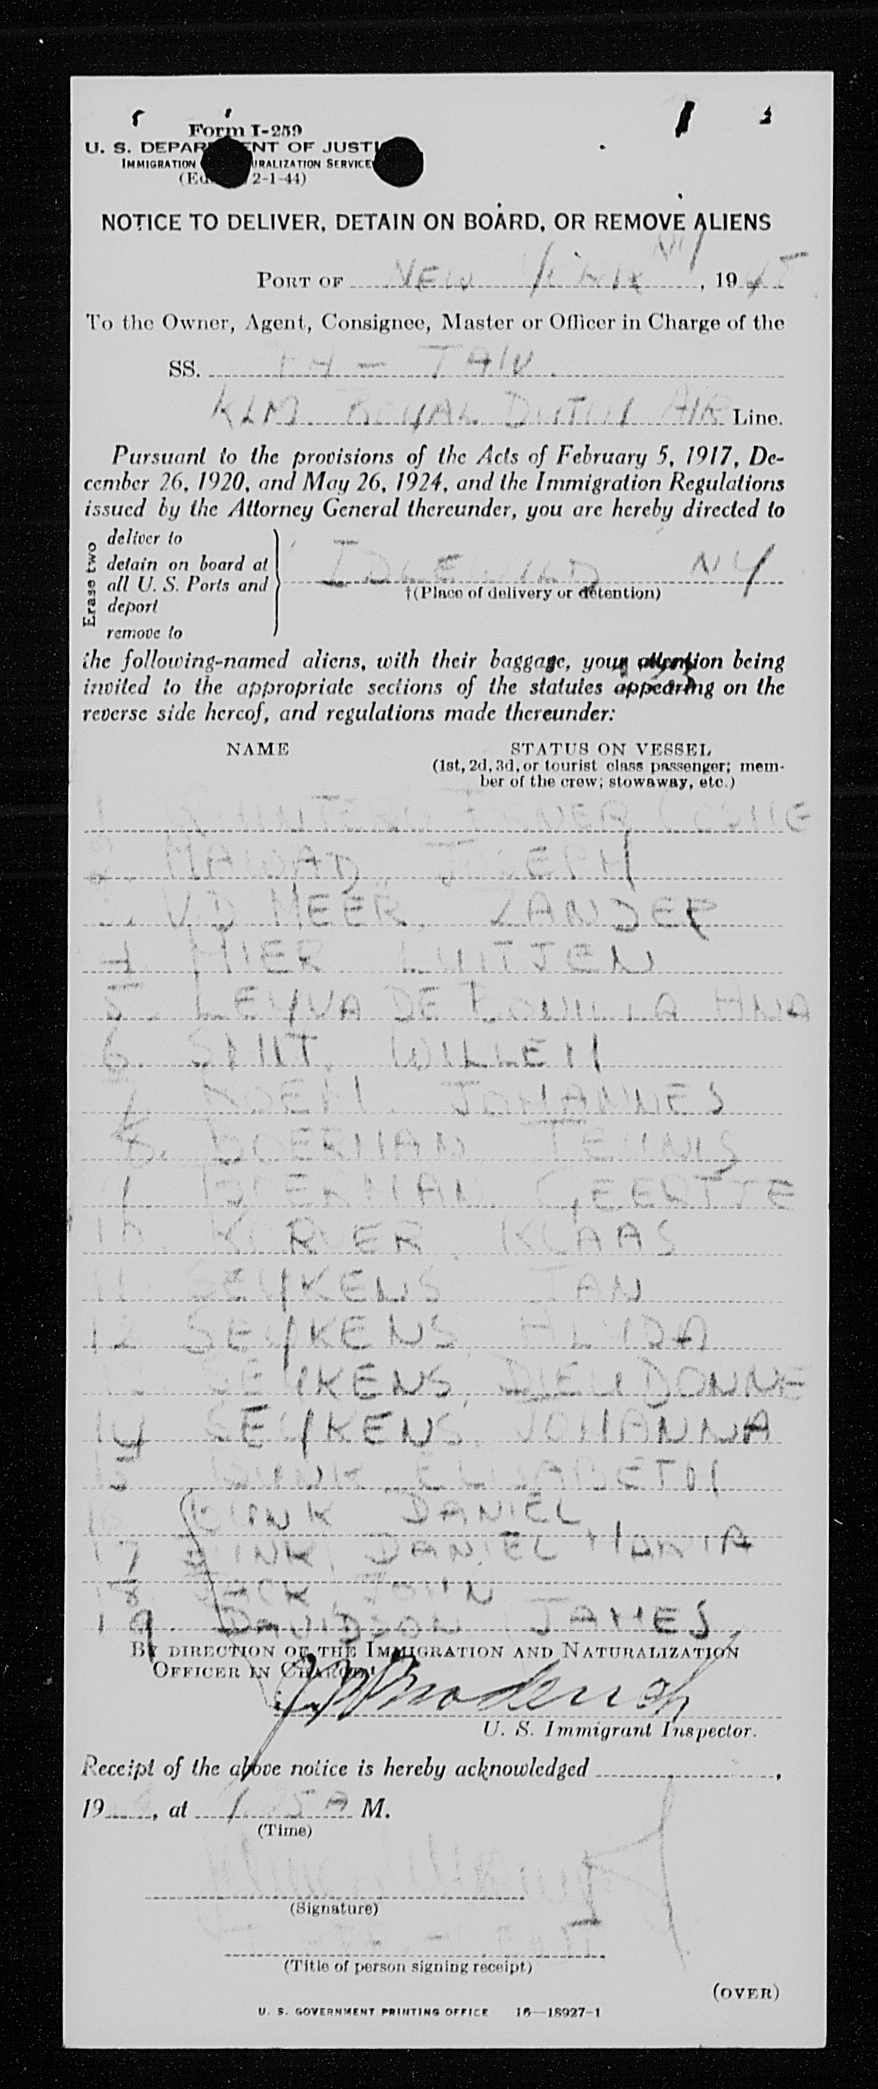 Form I-259
U. S. DEPARTMENT OF JUSTICE
IMMIGRATION NATURALIZATION SERVICE
2-1-44)
NOTICE TO DELIVER, DETAIN ON BOARD, OR REMOVE ALIENS
PORT OF NEW YORK NY, 19
To the Owner, Agent, Consignee, Master or Officer in Charge of the
SS. PH - TAW.
KLM ROYAL DUTCH AIR Line.
Pursuant to the provisions of the Acts of February 5, 1917, De-
cember 26, 1920, and May 26, 1924, and the Immigration Regulations
issued by the Attorney General thereunder, you are hereby directed to
Erase two
deliver to
detain on board at
all U. S. Ports and
deport
remove to
IDLEWILD NY
†(Place of delivery or detention)
the following-named aliens, with their baggage, your attention being
invited to the appropriate sections of the statutes appearing on the
reverse side hereof, and regulations made thereunder:
NAME
STATUS ON VESSEL
(1st, 2d, 3d, or tourist class passenger; mem-
ber of the crew; stowaway, etc.)
1
2. JOSEPH
3. V.D MEER, ZANDER
4 MIER LUITJEN
5. LEYVA DE BONILLA ANA
6. SMIT, WILLEM
7 JOHANNES
8. BOERMAN TEUNIS
9 BOERMAN GEERTJE
10. KORVER, KLAAS
11 SEYKENS JAN
12 SEYKENS ALIDA
13 SEYKENS, DIEUDONNE
14 SEYKENS, JOHANNA
15 ELIZABETH
16 DANIEL
17 DANIEL MARIA
18 JOHN
19. DAVIDSON JAMES
BY DIRECTION OF THE IMMIGRATION AND NATURALIZATION
OFFICER IN CHARGE:
U. S. Immigrant Inspector.
Receipt of the above notice is hereby acknowledged ,
19 , at A M.
(Time)
(Signature)
(Title of person signing receipt)
(OVER)
U. S. GOVERNMENT PRINTING OFFICE 16—18927-1